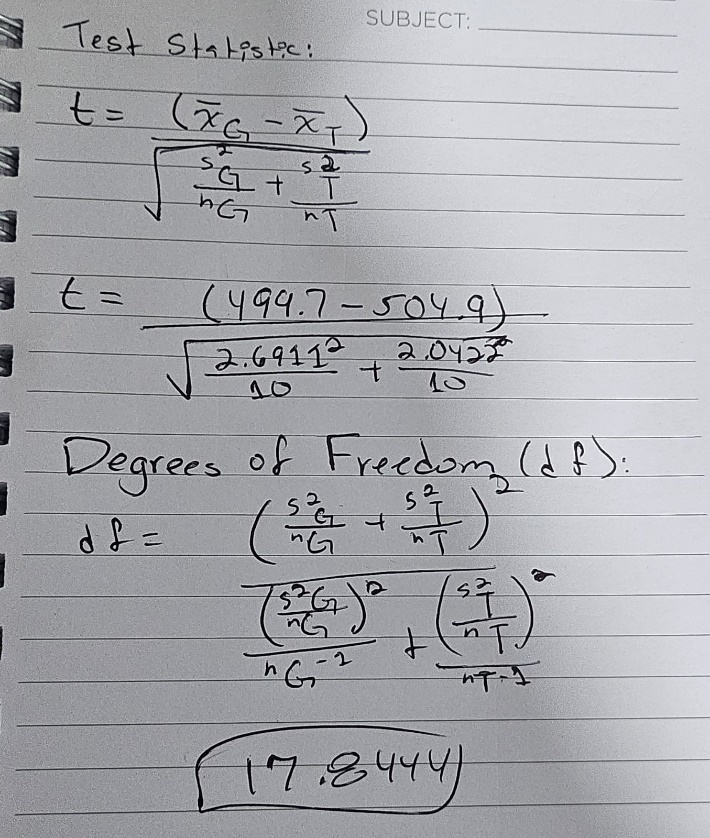 SUBJECT:
Test Statistic:
t = (x̄G - x̄T) / √(s²G/nG + s²T/nT)
t = (499.7 - 504.9) / √(2.6911²/10 + 2.0422²/10)
Degrees of Freedom (df):
df = (s²G/nG + s²T/nT)² / ((s²G/nG)²/nG-1 + (s²T/nT)²/nT-1)
17.8444